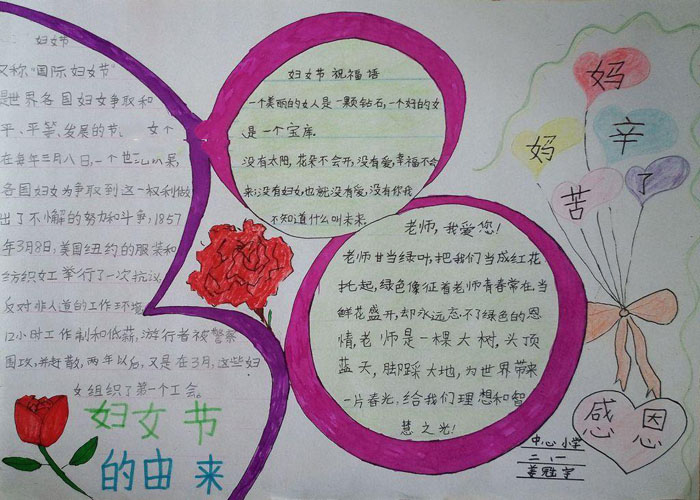 妇女节
又称"国际妇女节"
是世界各国妇女争取和
平、平等、发展的节、
在每年三月八日,一个世
各国妇女为争取到这一权利做
出了不懈的努力和斗争,1857
年3月8日,美国纽约的服装和
纺织女工举行了一次抗议
反对非人道的工作环境
12小时工作制和低薪,游行者被警察
围攻,并赶散,两年以后,又是在3月,这些妇
女组织了第一个工会。
妇女节
的由来
妇女节祝福语
一个美丽的女人是一颗钻石,一个好的女
是一个宝库.
没有太阳,花朵不会开,没有爱,幸福不会
来;没有妇女,也就没有爱,没有你我
不知道什么叫未来.
老师,我爱您!
老师甘当绿叶,把我们当成红花
托起,绿色像征着老师青春常在,当
鲜花盛开,却永远忘不了绿色的恩
情,老师是一棵大树,头顶
蓝天,脚踩大地,为世界带来
一片春光,给我们理想和智
慧之光!
妈
妈
辛
苦
了
感恩
中心小学
二、一